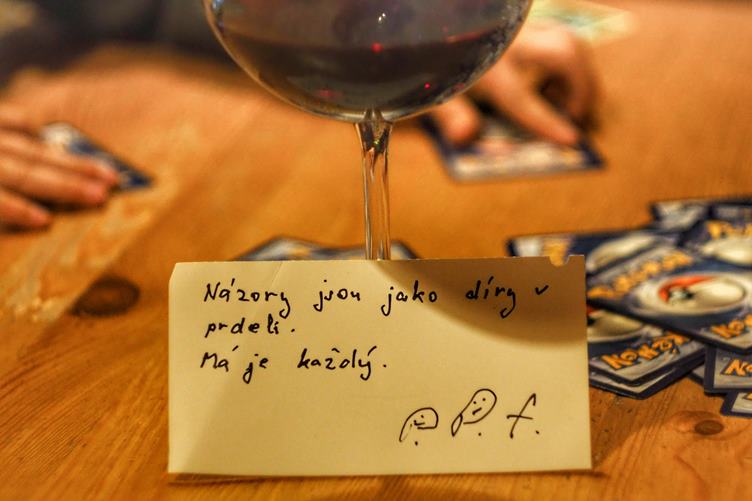 Názory jsou jako díry v
prdeli.
Má je každý.
P. P. f.